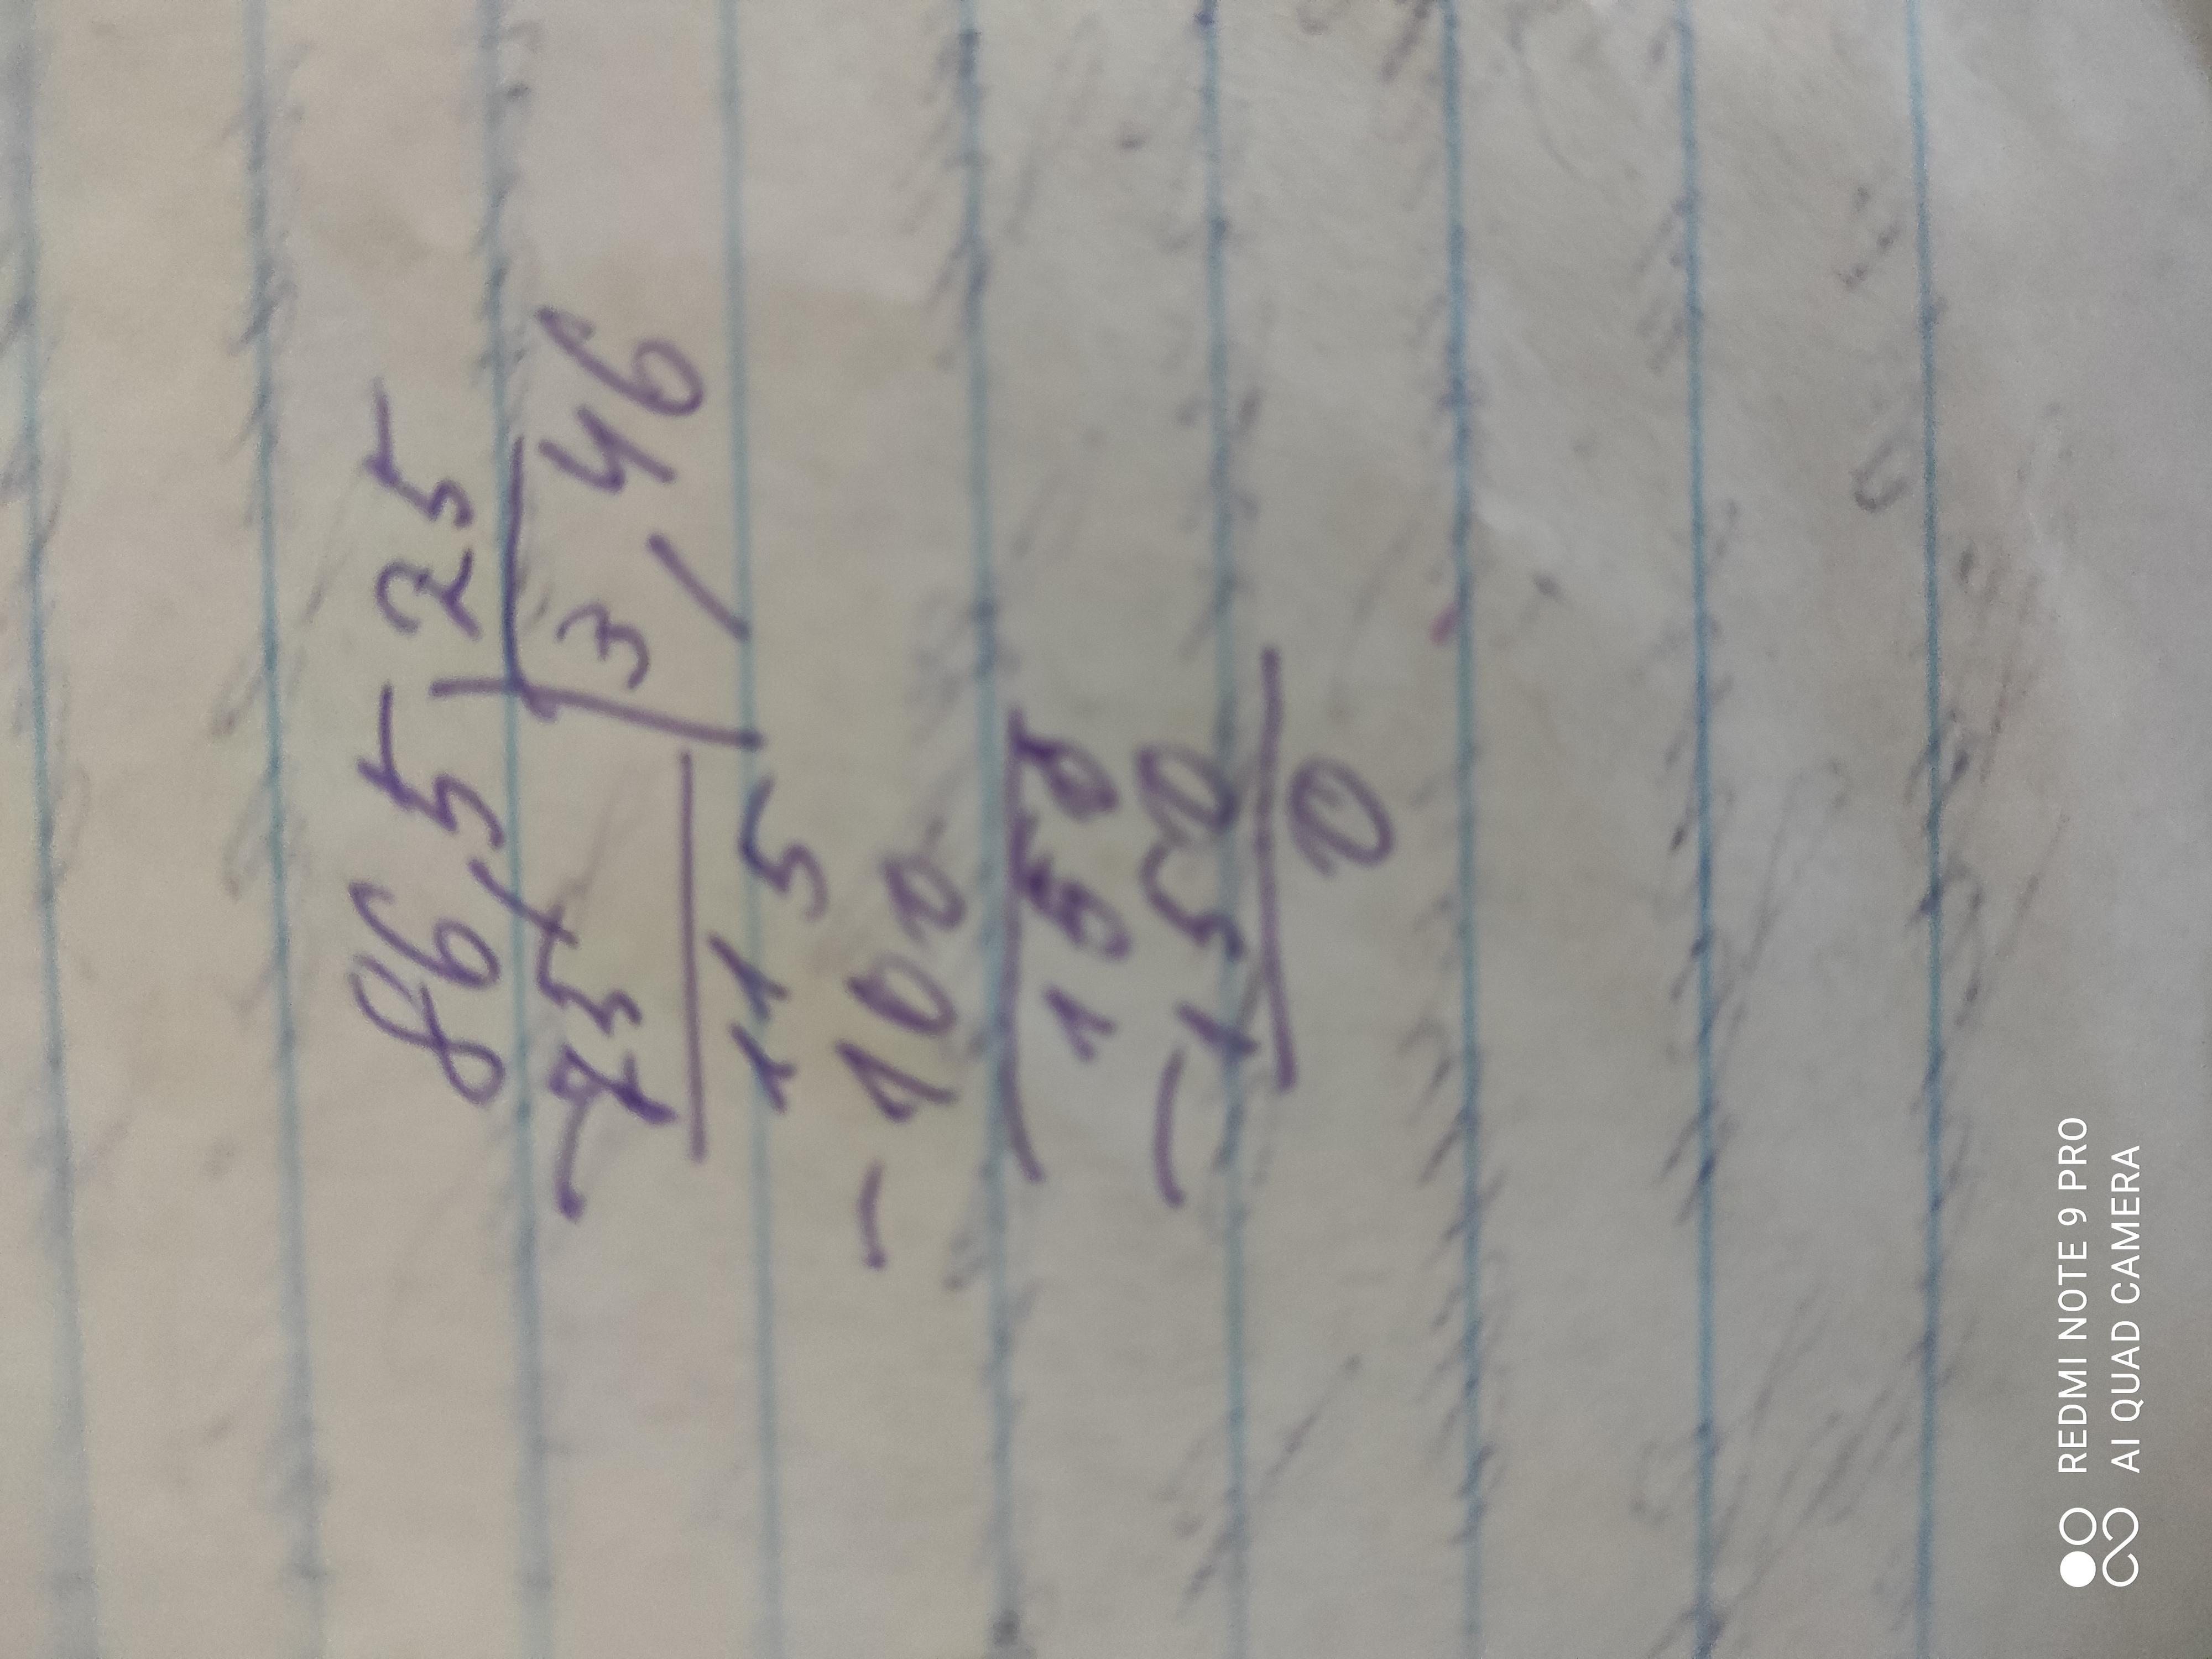 86,5 25
-75 3,46
115
-100
150
-150
0
REDMI NOTE 9 PRO
AI QUAD CAMERA